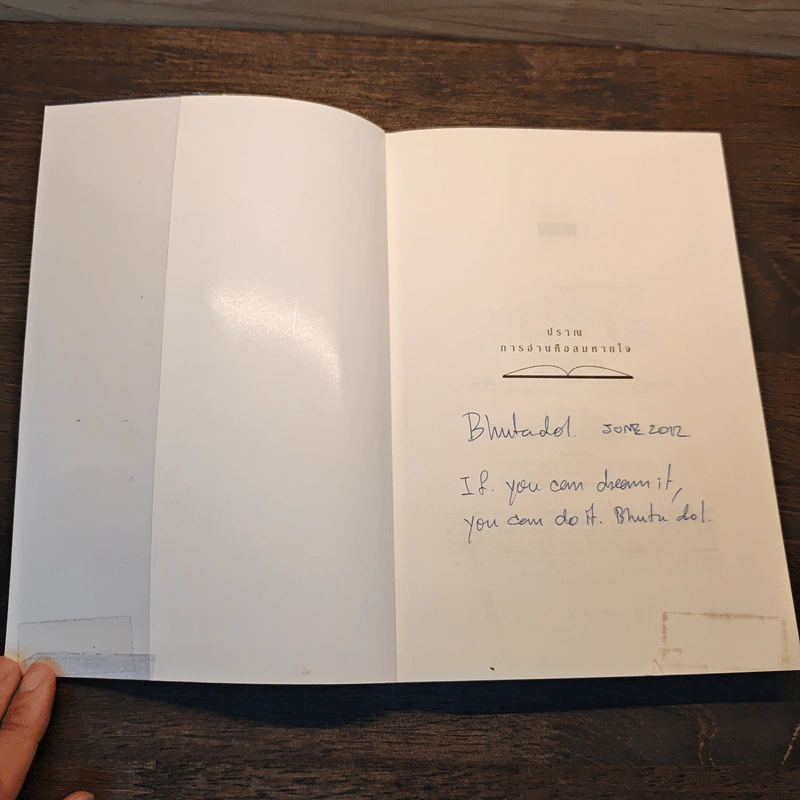 ปราณ
การอ่านคือลมหายใจ
Bhutadol. JUNE 2012
If. you can dream it,
you can do it. Bhutadol.